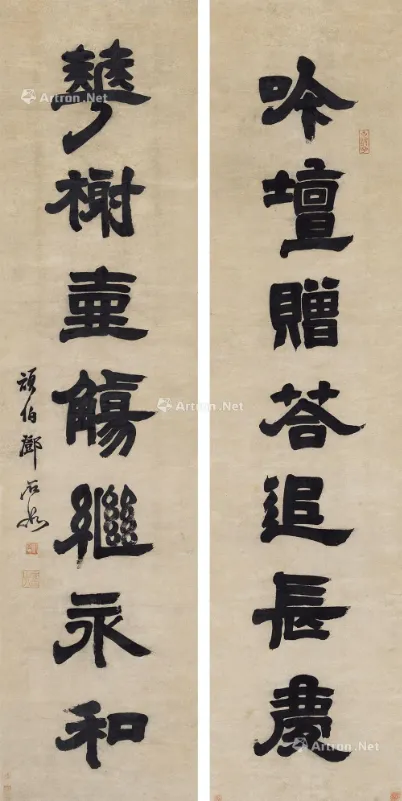 吟壇贈荅追長慶
華榭壷觴繼永和
頑伯鄧石如
Artron.Net
Artron.Net
Artron.Net
Artron.Net